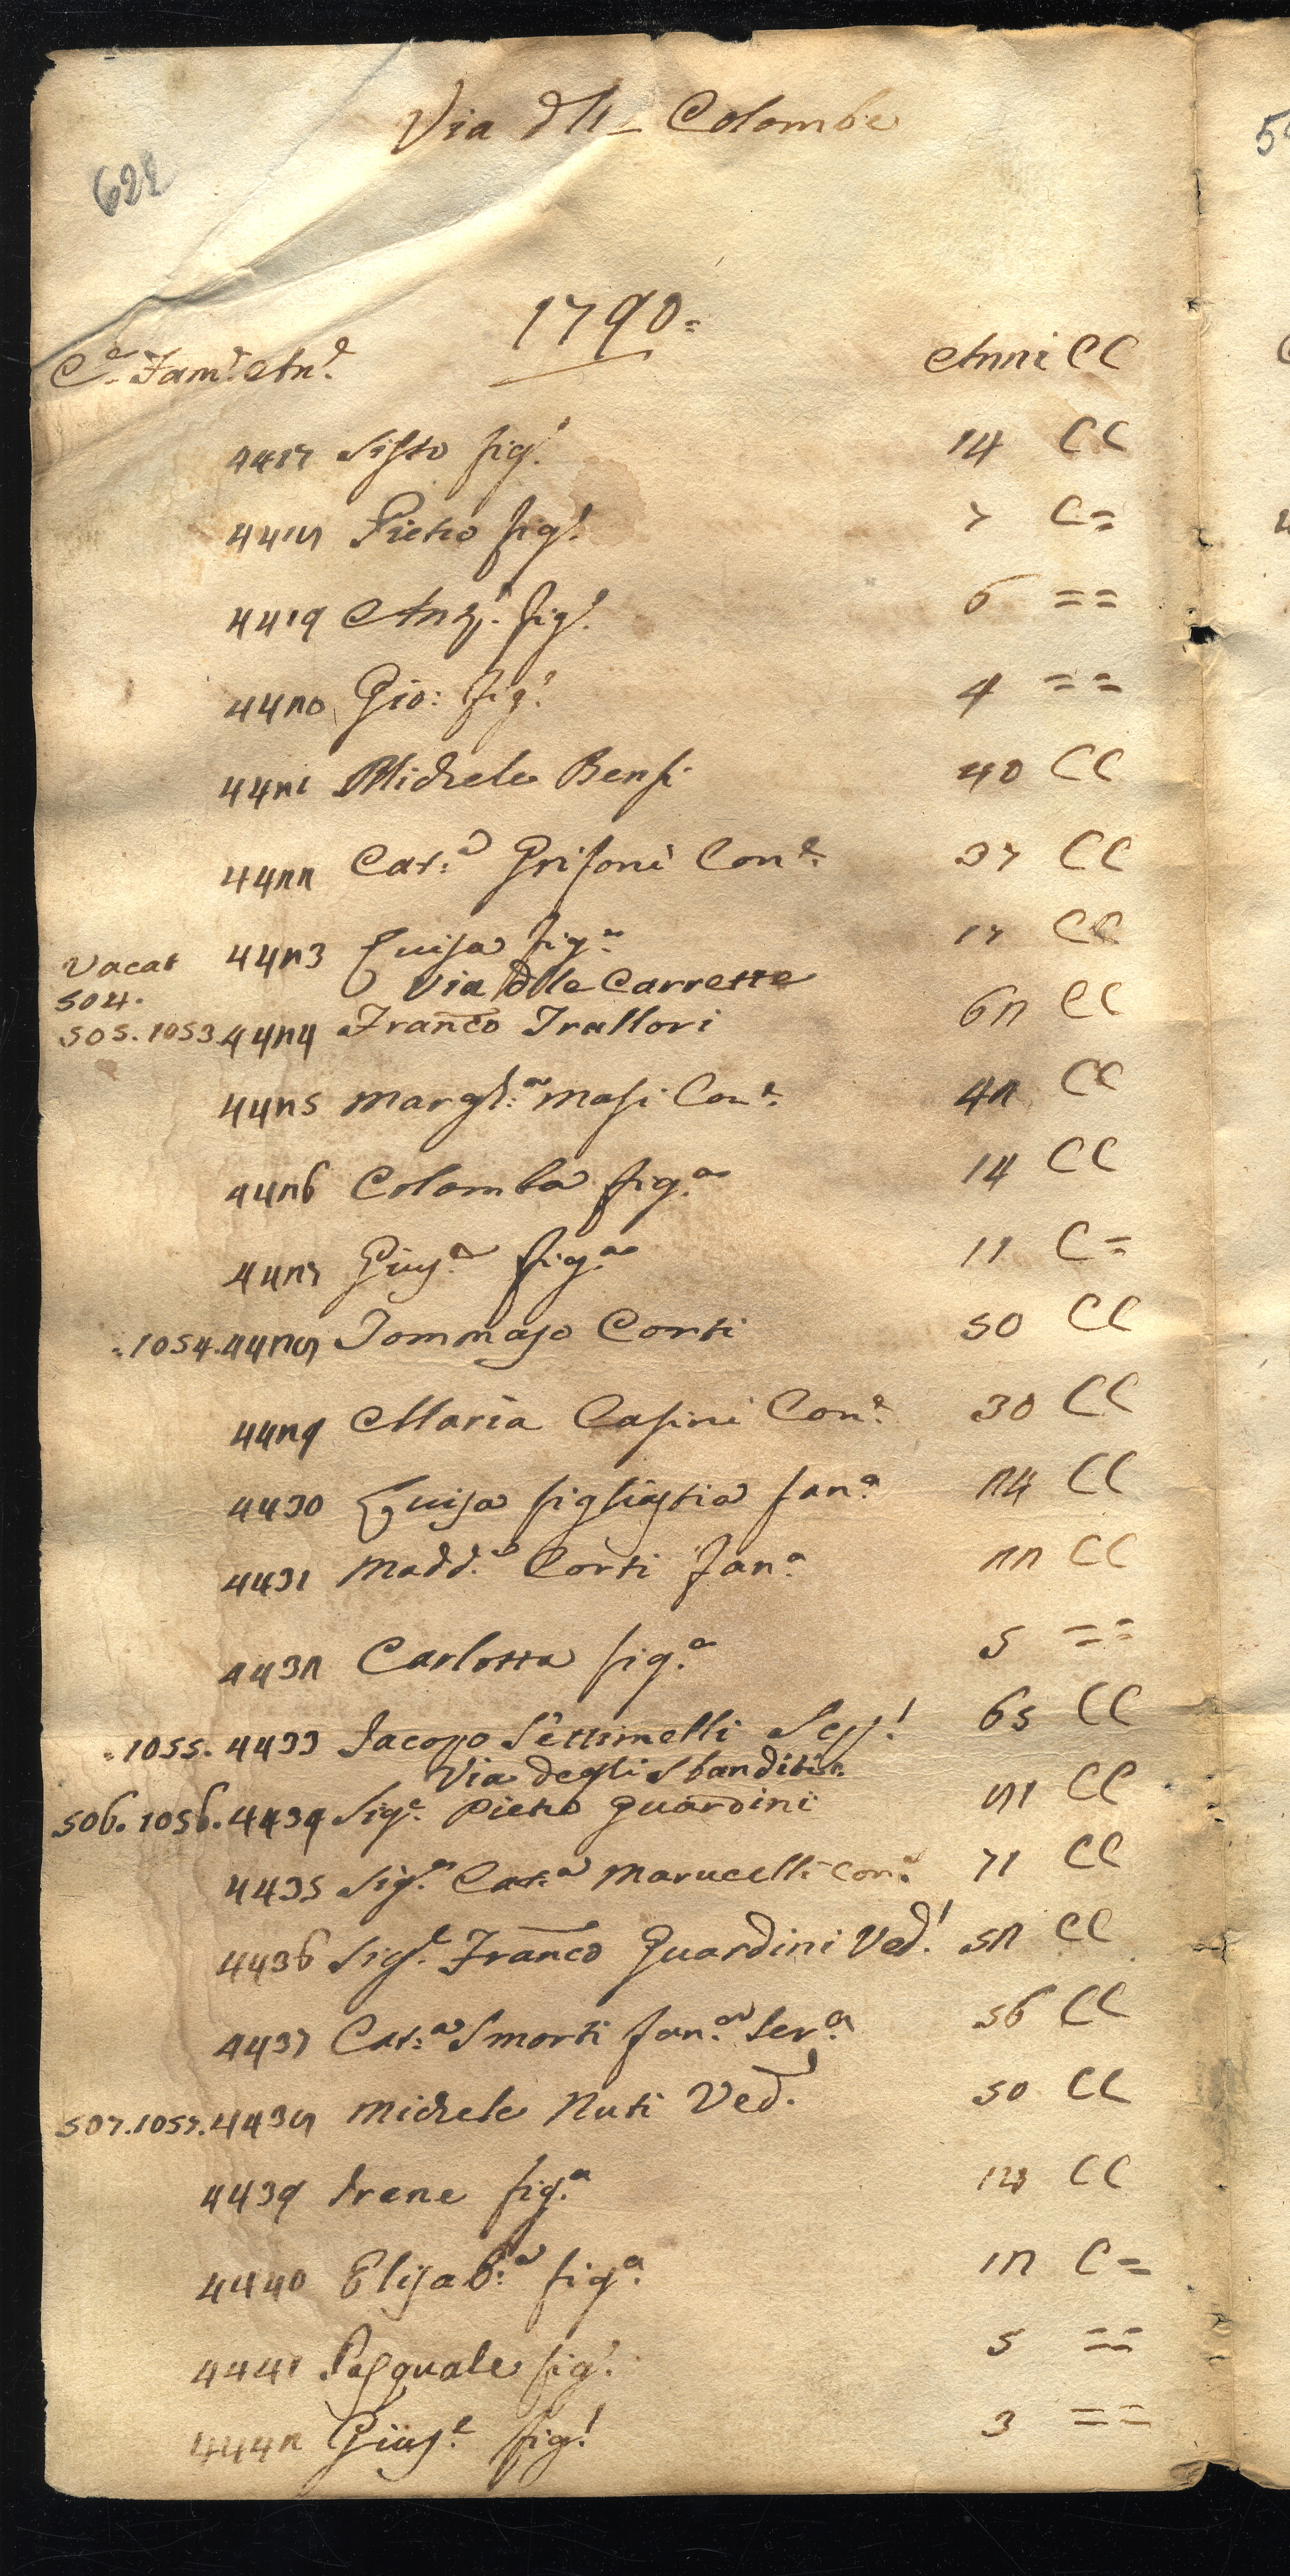 Via dll_ Colombe
622
1790=
C.e Fam.e An.e Anni CC
4417 Sisto fig.o 14 CC
4418 Pietro fig.o 7 C=
4419 Ang.o fig.o 6 ==
4420 Gio: fig.o 4 ==
4421 Michele Bensi 40 CC
4422 Cat:a Grisoni Con.e 37 CC
Vacat 4423 Luisa fig.a 17 CC
Via dlle Carrette
504.
505. 1053. 4424 Franco Trallori 62 CC
4425 Margh:a Masi Con.e 42 CC
4426 Colomba fig.a 14 CC
4427 Gius.a fig.a 11 C=
1054. 4428 Tommaso Corti 50 CC
4429 Maria Casini Con.e 30 CC
4430 Luisa figliastra fan.a 24 CC
4431 Madd.a Corti fan.a 22 CC
4432 Carlotta fig.a 5 ==
1055. 4433 Jacopo Settimelli 65 CC
Via degli Sbanditi
506. 1056. 4434 Sig.e Pietro Guardini 81 CC
4435 Sig.a Cat:a Marucelli Con.e 71 CC
4436 Sig.e Franco Guardini Ved.o 52 CC
4437 Cat:a Smorti fan.a Ser.a 56 CC
507. 1057. 4438 Michele Nuti Ved.o 50 CC
4439 Irene fig.a CC
4440 Elisab:a fig.a 12 C=
4441 Pasquale fig.o 5 ==
4442 Gius.e fig.o 3 ==